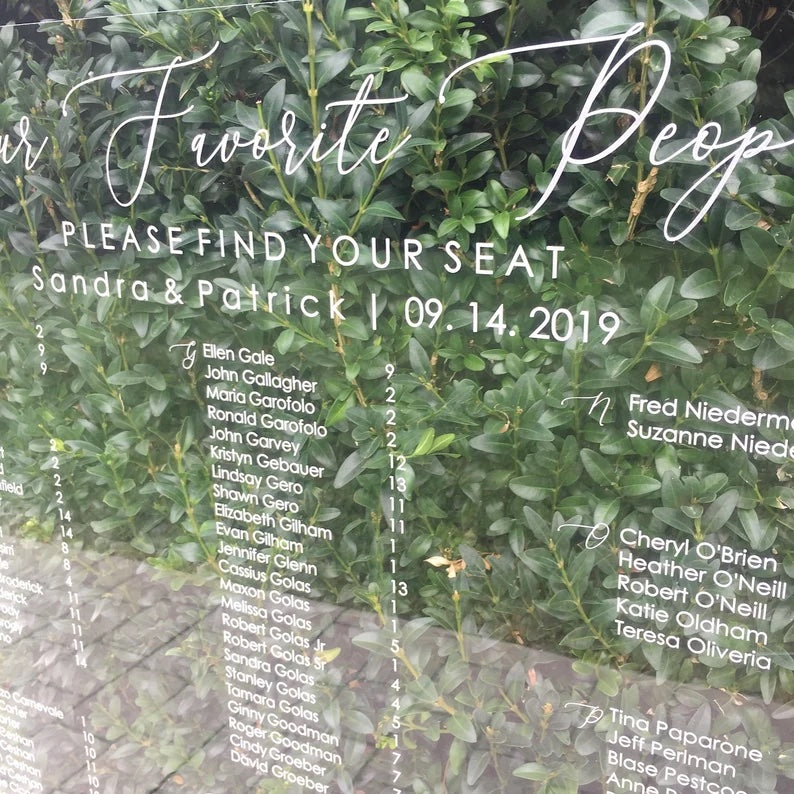 Favorite
PLEASE FIND YOUR SEAT
Sandra & Patrick | 09. 14. 2019
2
9
9
2
2
2
2
14
14
8
8
4
11
11
11
11
14
Carnevale
10
10
10
10
G
Ellen Gale 9
John Gallagher 2
Maria Garofolo 2
Ronald Garofolo 2
John Garvey 12
Kristyn Gebauer 13
Lindsay Gero 11
Shawn Gero 11
Elizabeth Gilham 1
Evan Gilham 1
Jennifer Glenn 13
Cassius Golas 1
Maxon Golas 1
Melissa Golas 5
Robert Golas Jr 1
Robert Golas Sr 4
Sandra Golas 4
Stanley Golas 4
Tamara Golas 5
Ginny Goodman 1
Roger Goodman 7
Cindy Groeber 7
David Groeber 7
N
Fred
Suzanne
O
Cheryl O'Brien
Heather O'Neill
Robert O'Neill
Katie Oldham
Teresa Oliveria
P
Tina Paparone
Jeff Perlman
Blase
Anne